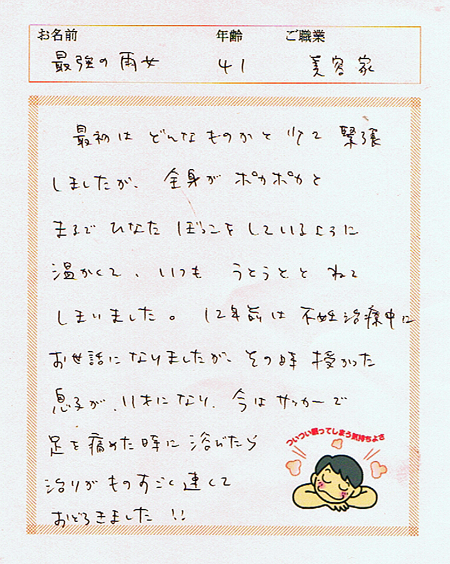 お名前 年齢 ご職業
最強の雨女 41 美容家
最初は どんなものかと 少々 緊張
しましたが、全身が ポカポカと
まるで ひなた ぼっこを しているように
温かくて、いつも うとうとと ねて
しまいました。12年前は 不妊治療中に
お世話になりましたが、その時 授かった
息子が、11才になり、今は サッカーで
足を痛めた時に 浴びたら
治りがものすごく 速くて
おどろきました!!
ついつい眠ってしまう気持ちよさ